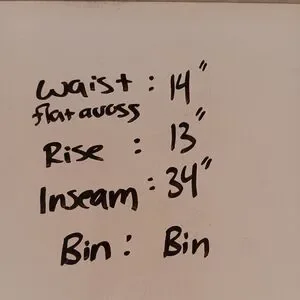 Waist : 14"
flat across
Rise : 13"
Inseam : 34"
Bin : Bin